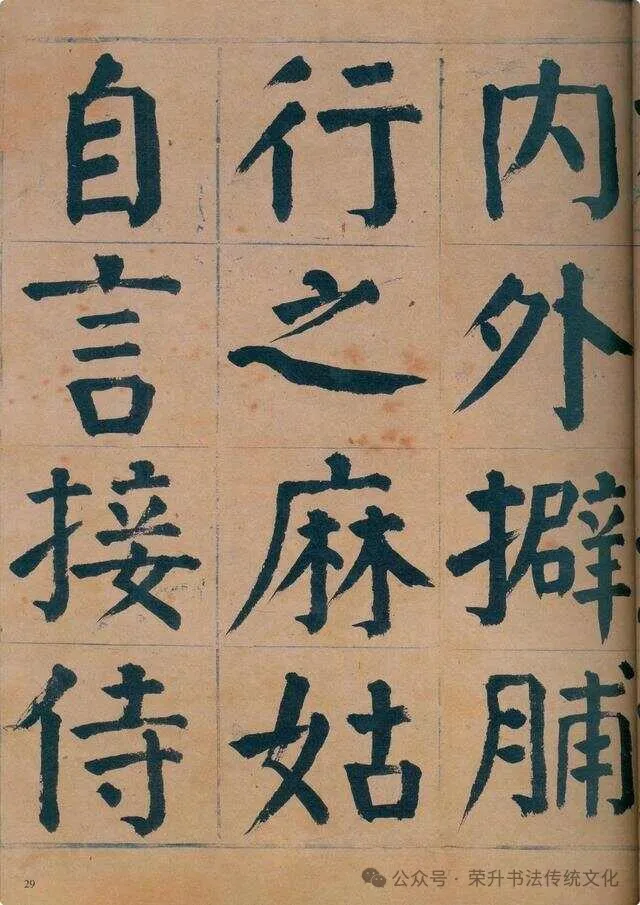 内外擗脯
行之麻姑
自言接侍
29
公众号·荣升书法传统文化